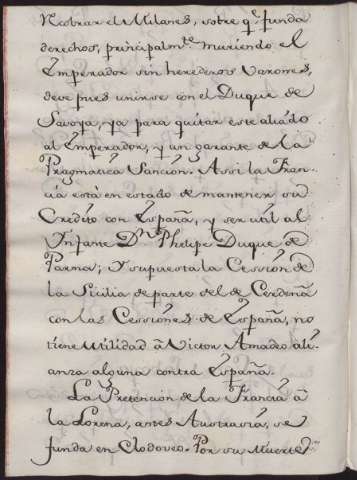 Recobrar el Milanes, sobre q.e funda
derechos, principalm.te muriendo el
Emperador sin herederos Varones,
deve pues unirse con el Duque de
Savoya, ya para quitar este aliado
al Emperador, y un garante de la
Pragmatica Sancion. Assi la Fran-
cia está en estado de mantener su
Credito con España, y ser util al
Ynfante D.n Phelipe Duque de
Parma; Y supuesta la Cession de
la Sicilia de parte del de Cerdeña
con las Cessiónes de España, no
tiene utilidad â Victor Amadeo ali-
anza alguna contra España.
La Pretencion de la Francia â
la Lorena, antes Austravia, se
funda en Clodoveo. Por su Muerte